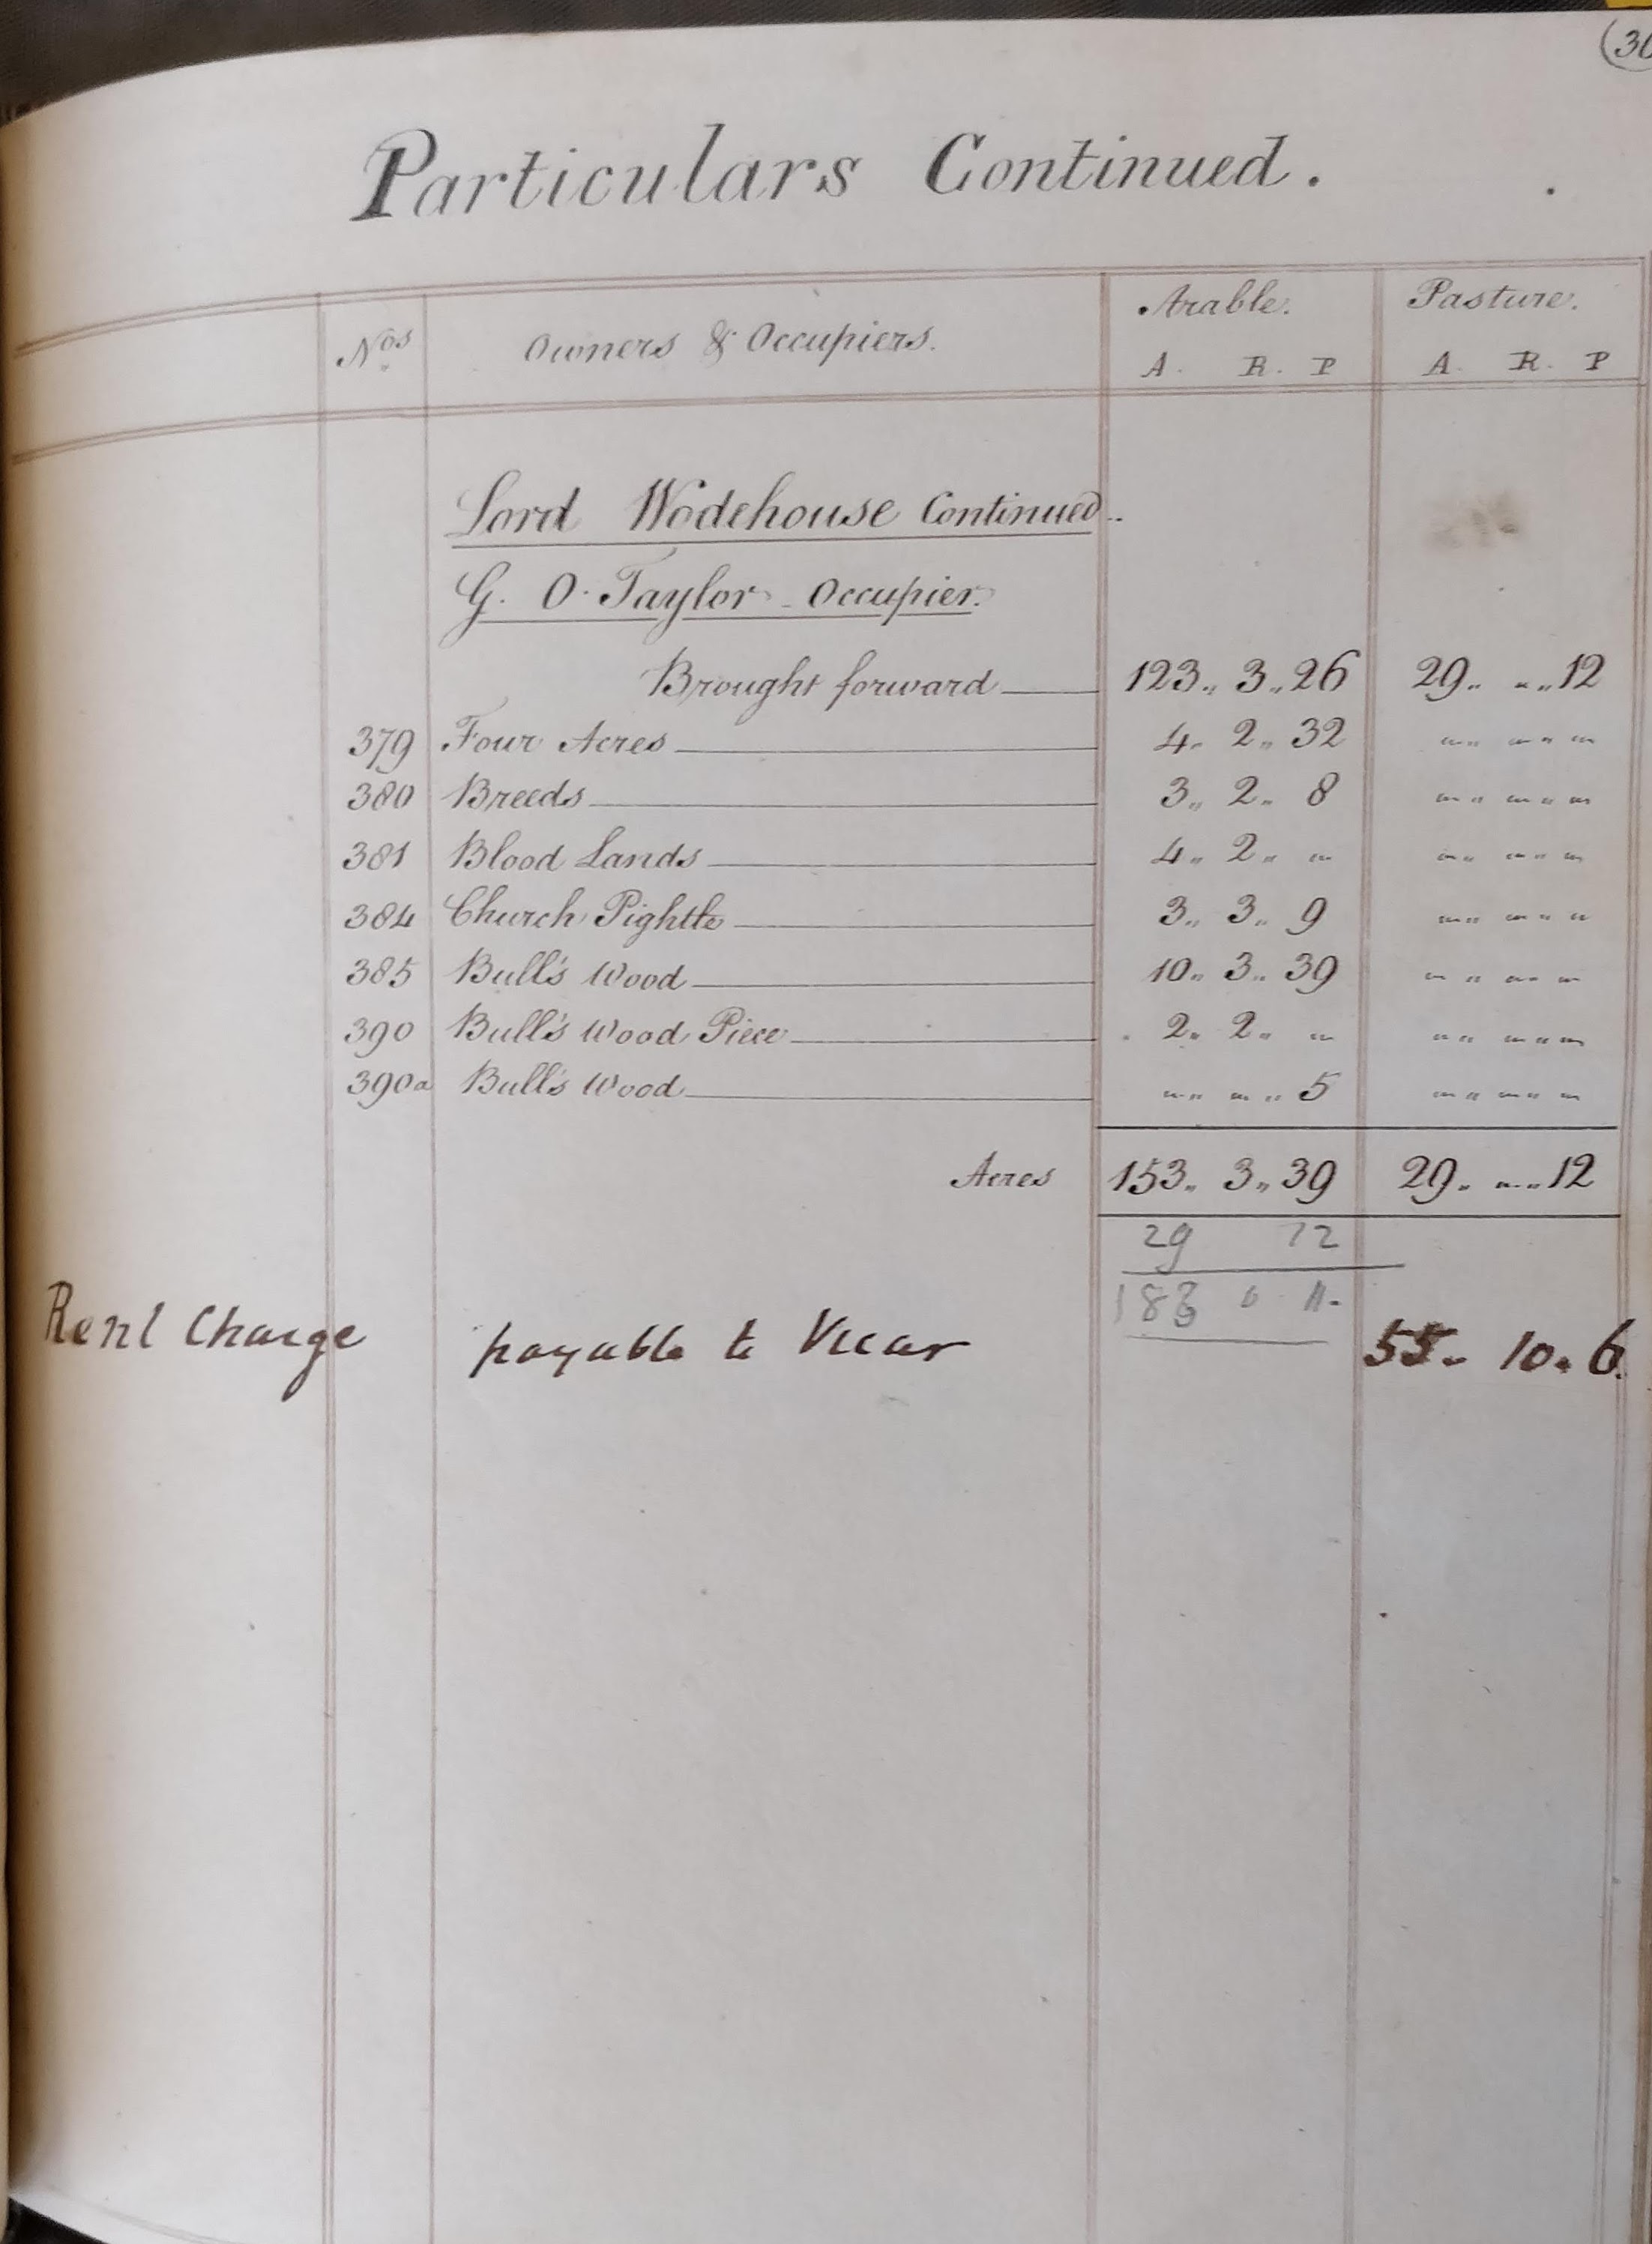 Particulars Continued.
Nos Owners & Occupiers. Arable. Pasture.
A. R. P A. R. P
Lord Wodehouse Continued..
G. O. Taylor Occupier.
Brought forward 123.. 3.. 26 29.. " .. 12
379 Four Acres 4.. 2.. 32 " .. " .. "
380 Breeds 3.. 2.. 8 " .. " .. "
381 Blood Lands 4.. 2.. " " .. " .. "
384 Church Pightle 3.. 3.. 9 " .. " .. "
385 Bull's Wood 10.. 3.. 39 " .. " .. "
390 Bull's Wood Piece 2.. 2.. " " .. " .. "
390a Bull's Wood " .. " .. 5 " .. " .. "
Acres 153.. 3.. 39 29.. " .. 12
29 12
183 0 11.
Rent Charge payable to Vicar 55.. 10.. 6.